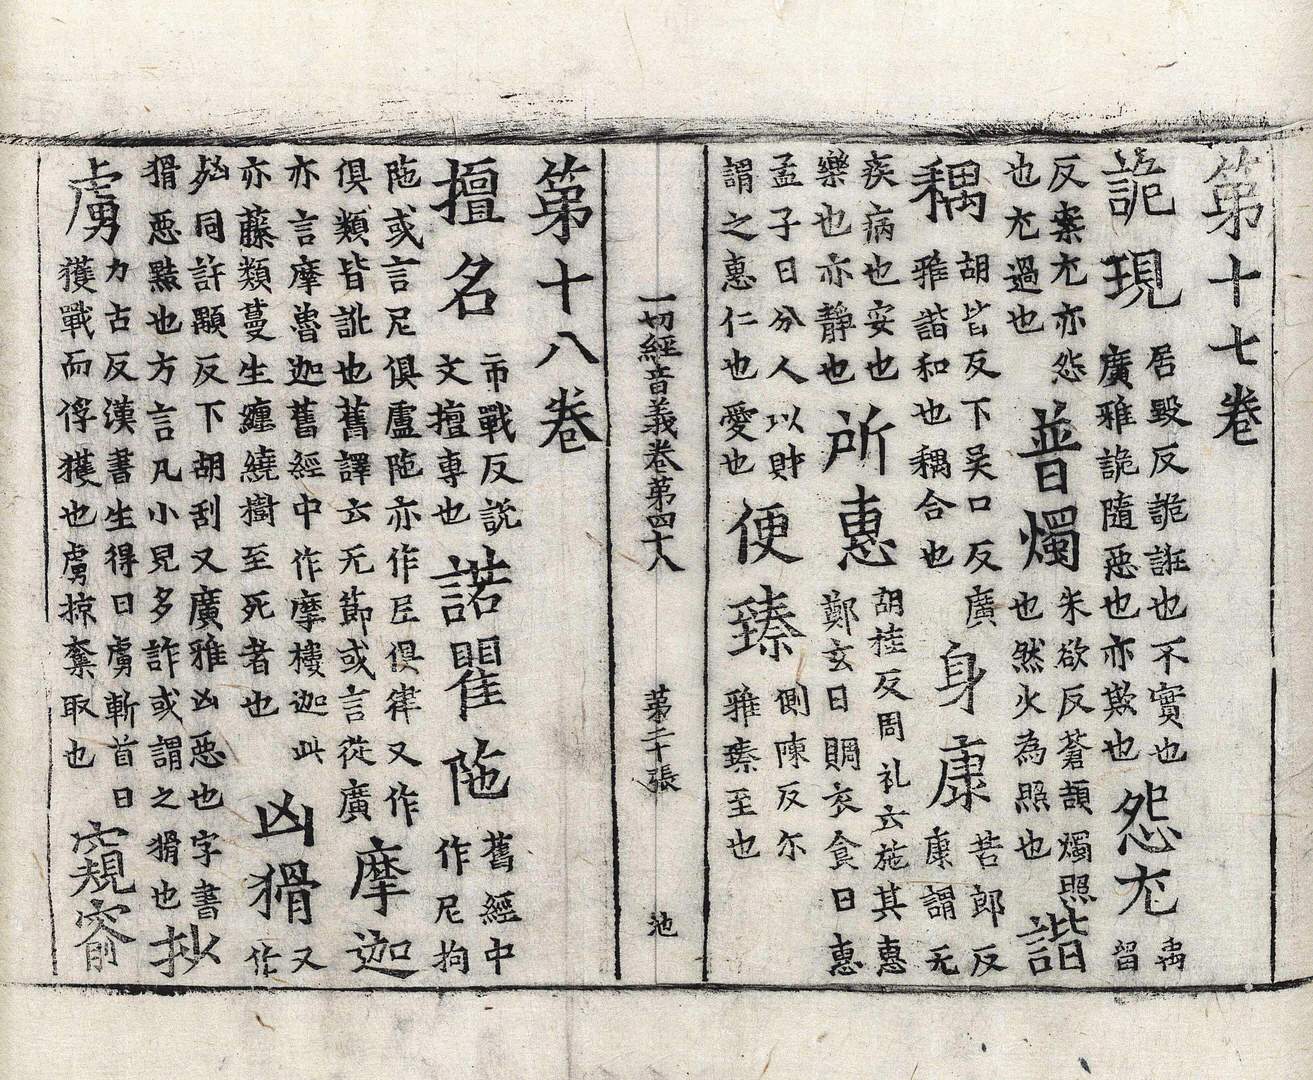 第十七卷
詭現居毀反詭誑也不實也廣雅詭隨惡也亦欺也怨尤禹留
反案尤亦怨也尤過也普燭朱欲反蒼頡燭照也然火為照也諧
耦胡皆反下吴口反廣雅諧和也耦合也身康苦郎反康謂无
疾病也安也樂也亦靜也所惠胡桂反周礼云施其惠鄭玄曰賙衣食曰惠
孟子曰分人以財謂之惠仁也愛也便臻側陳反尒雅臻至也
一切經音義卷第四十八 第二十張 池
第十八卷
擅名市戰反説文擅專也諾瞿陁舊經中作尼拘
陁或言尼俱盧陁亦作尼俱律又作俱類皆訛也舊譯云无節或言従廣摩迦
亦言摩魯迦舊經中作摩樓迦此亦藤類蔓生纏繞樹至死者也凶猾又作
同許顒反下胡刮又廣雅凶惡也字書猾惡黠也方言凡小兒多詐或謂之猾也抄
虜力古反漢書生得曰虜斬首曰獲戰而俘獲也虜掠奪取也窺窬